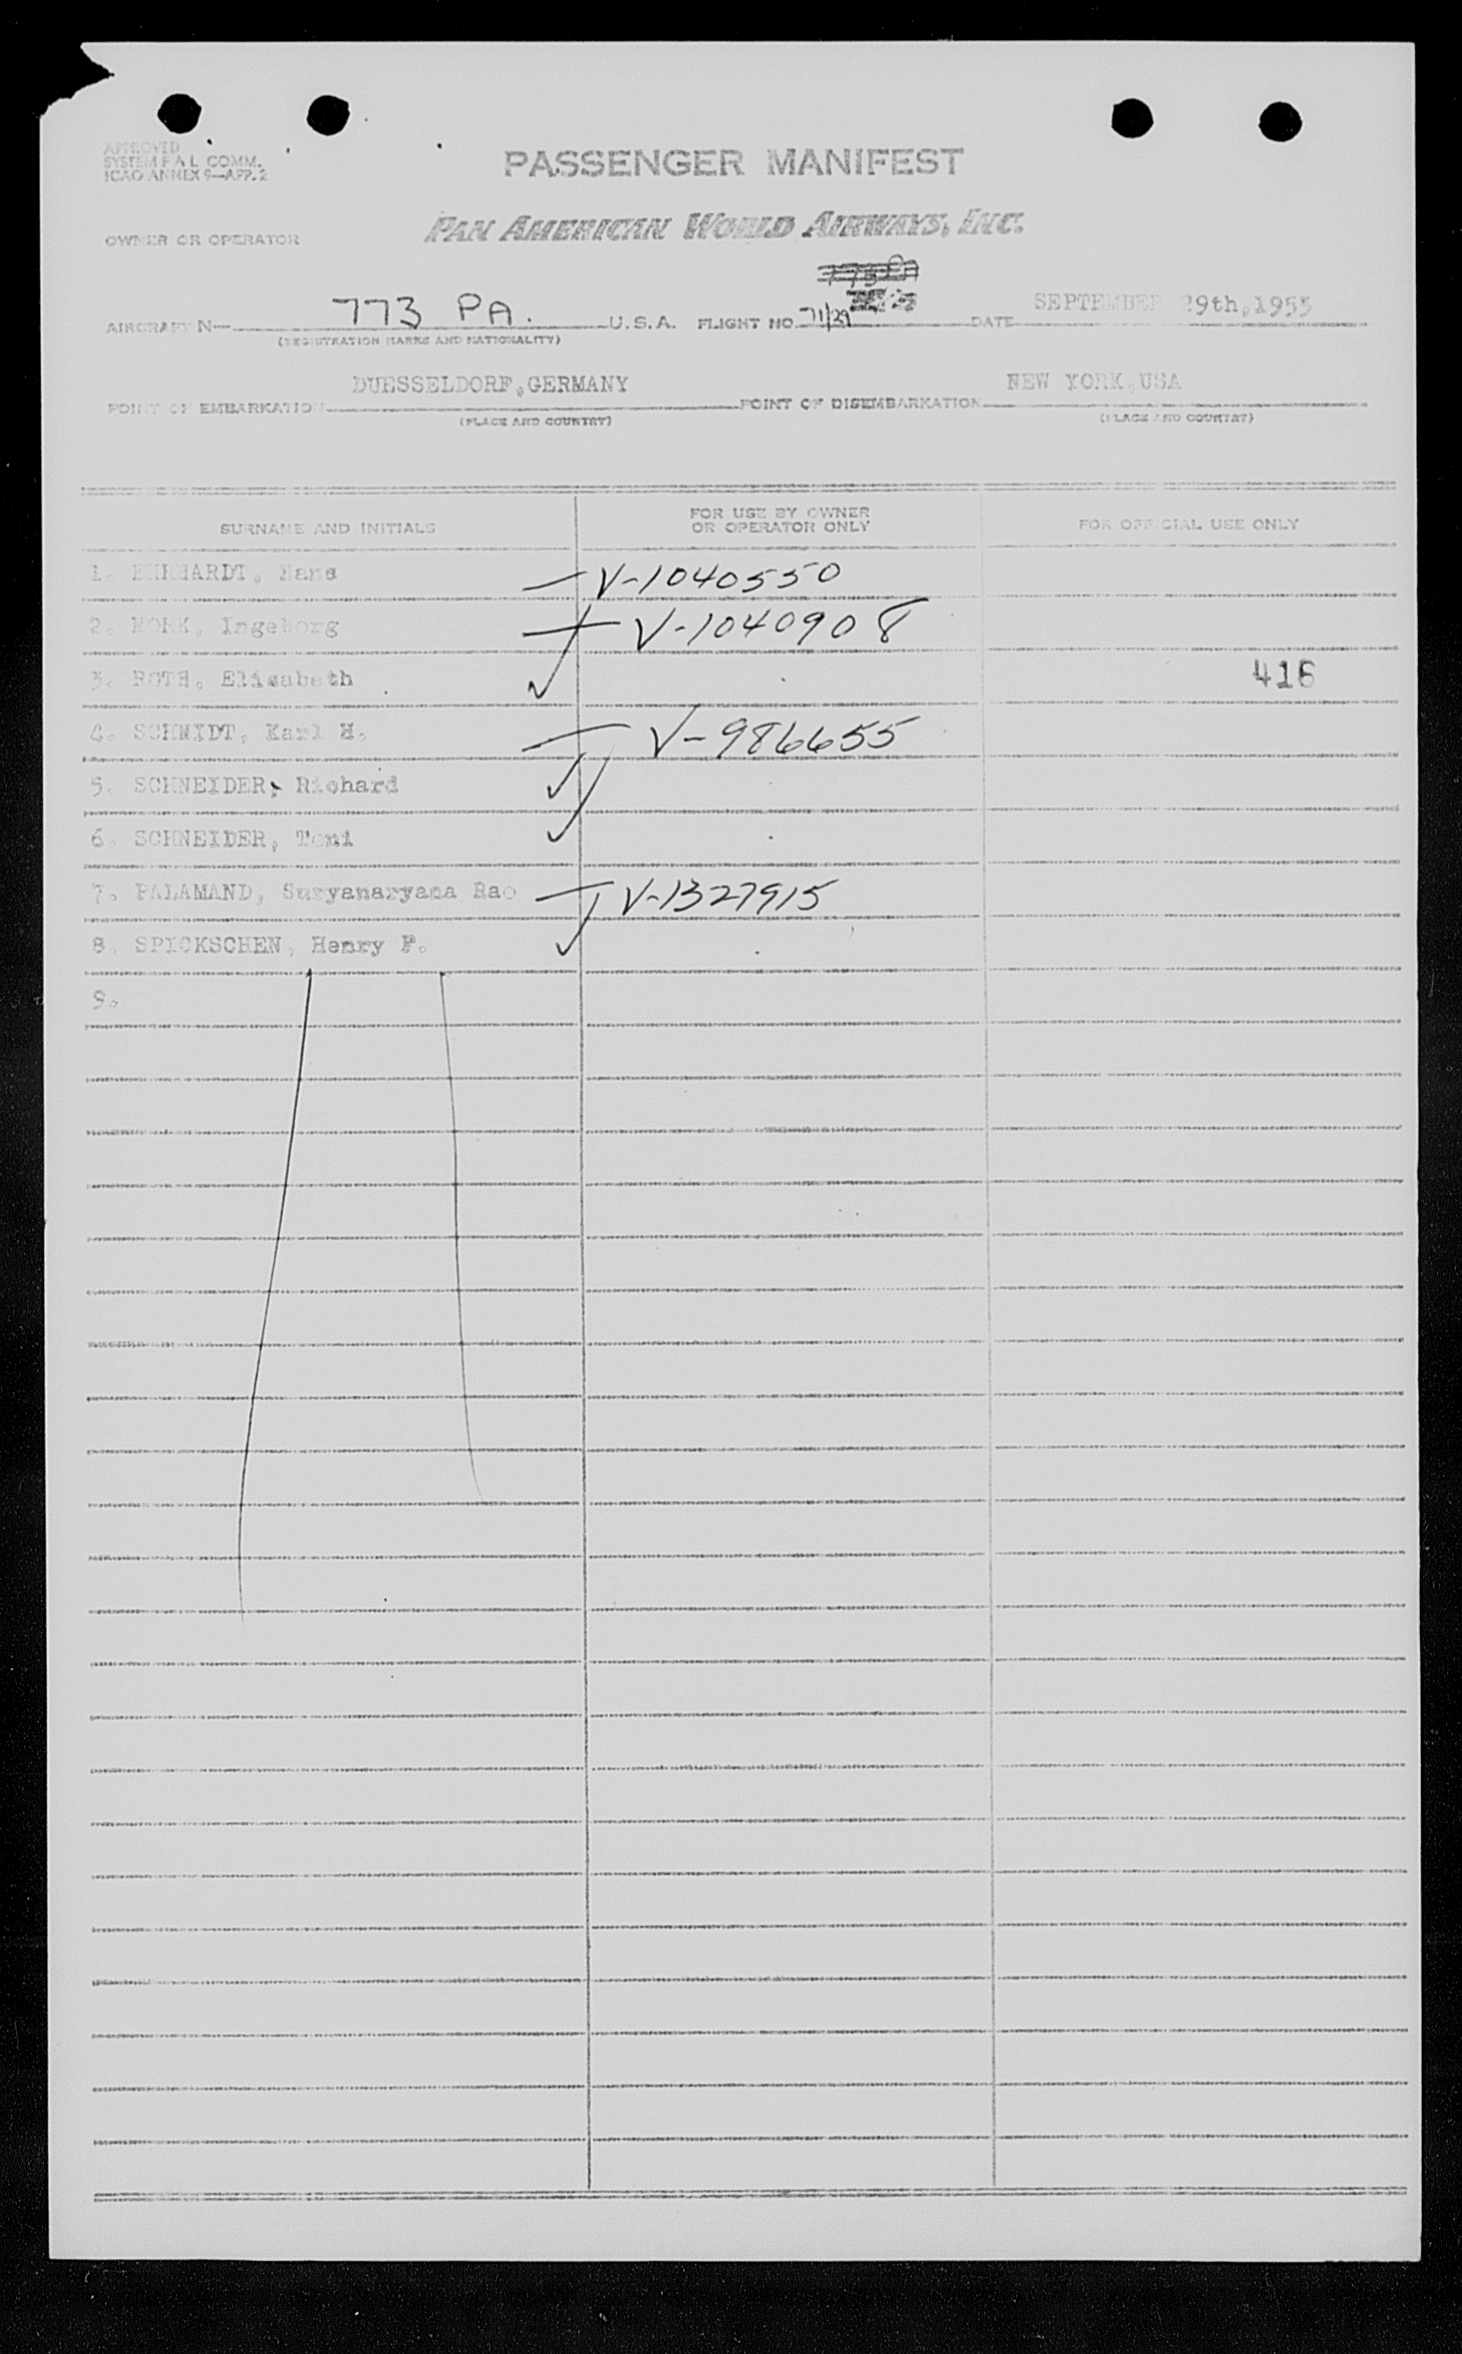 APPROVED
SYSTEM F A L COMM.
ICAO ANNEX 9—APP. 2
PASSENGER MANIFEST
OWNER OR OPERATOR PAN AMERICAN WORLD AIRWAYS, INC.
AIRCRAFT N— 773 PA. U.S.A. FLIGHT NO 71/29 DATE SEPTEMBER 29th,1955
(REGISTRATION MARKS AND NATIONALITY)
POINT OF EMBARKATION DUESSELDORF,GERMANY POINT OF DISEMBARKATION NEW YORK,USA
(PLACE AND COUNTRY) (PLACE AND COUNTRY)
SURNAME AND INITIALS FOR USE BY OWNER OR OPERATOR ONLY FOR OFFICIAL USE ONLY
1. EHRHARDT, Hans V-1040550
2. Ingeborg V-1040908
3. ROTH, Elisabeth 416
4. SCHMIDT, Karl H. V-986655
5. SCHNEIDER, Richard
6. SCHNEIDER, Toni
7. PALAMAND, Suryanaryana Rao V-1327915
8. SPICKSCHEN, Henry F.
9.